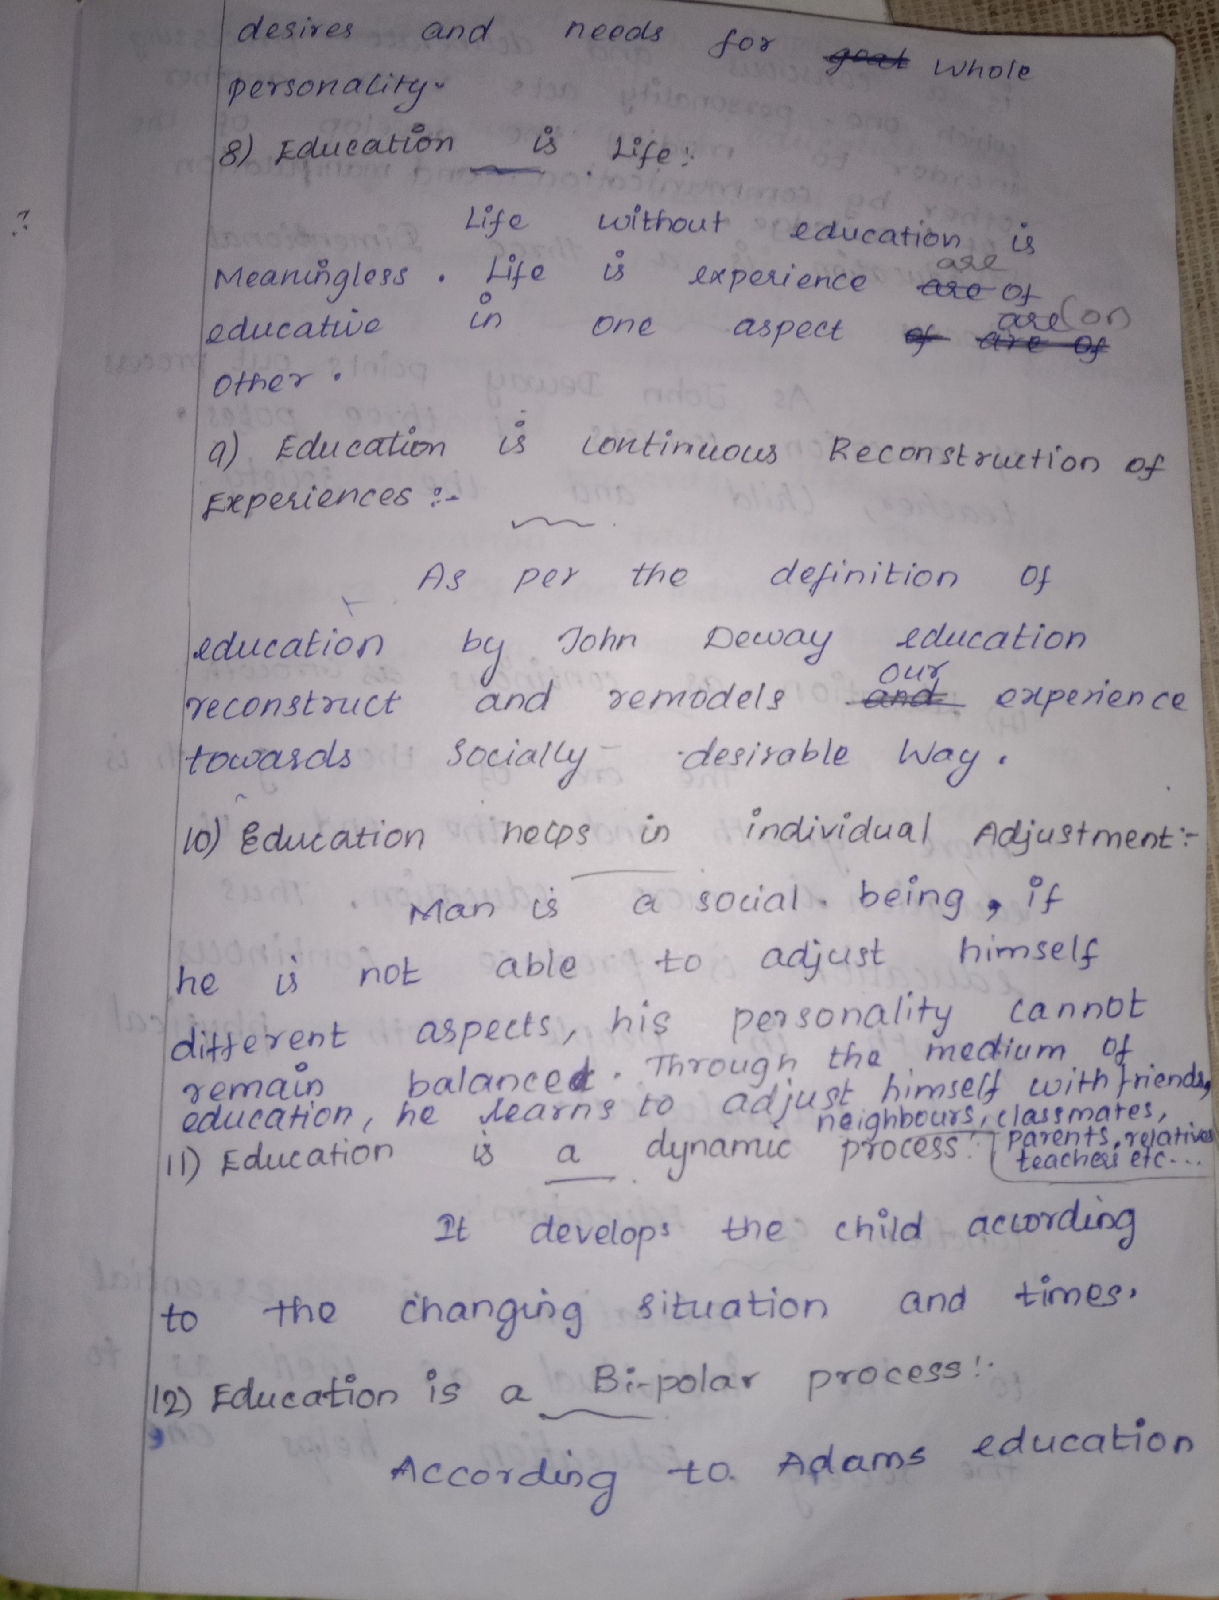 desires and needs for goat whole
personality.
8) Education is Life :-
Life without education is
Meaningless. Life is experience are are of
educative in one aspect of are of are (on
other.
9) Education is continuous Reconstruction of
Experiences :-
As per the definition of
education by John Deway education
reconstruct and remodels and our experience
towards socially desirable way.
10) Education helps in individual Adjustment:-
Man is a social being, if
he is not able to adjust himself
different aspects, his personality cannot
remain balanced. Through the medium of
education, he learns to adjust himself with friends,
neighbours, classmates,
parents, relatives
teachers etc...
11) Education is a dynamic process :-
It develops the child according
to the changing situation and times.
12) Education is a Bi-polar process :-
According to Adams education